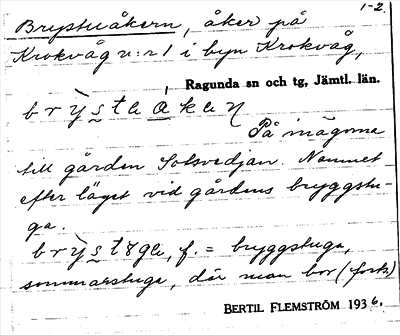 1-2.
Brystuåkern, åker på
Krokvåg n:r 1 i byn Krokvåg,
Ragunda sn och tg, Jämtl. län.
På inägorna
till gården Solsvedjan. Namnet
efter läget vid gårdens bryggstu-
ga.
f. = bryggstuga,
sommarstuga, där man bor (forts.)
BERTIL FLEMSTRÖM 1936.